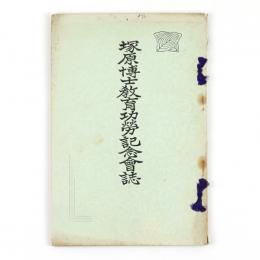 塚原博士教育功勞記念會誌